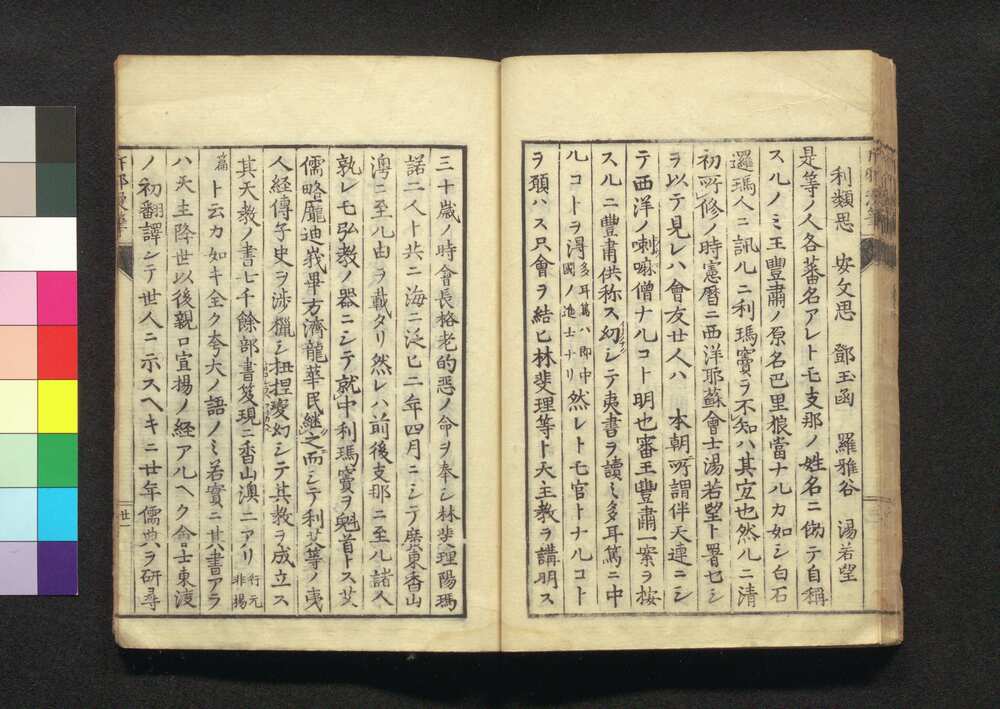 利類思　安文思　鄧玉函　羅雅谷　湯若望
是等ノ人各蕃名アレトモ支那ノ姓名ニ倣テ自稱
スルノミ王豐肅ノ原名巴里狼當ナルカ如シ白石
邏瑪人ニ訊ルニ利瑪竇ヲ不知ハ其宜也然ルニ清
初所修ノ時憲暦ニ西洋耶蘇會士湯若望ト署セシ
ヲ以テ見レハ會友廿人ハ　本朝所謂伴天連ニシ
テ西洋ノ喇嘛僧ナルコト明也審王豐肅一案ヲ按
スルニ豐肅供称ス幼シテ夷書ヲ讀ミ多耳篤ニ中
ルコトヲ淂多耳篤ハ即中國ノ進士ナリ然レトモ官トナルコト
ヲ願ハス只會ヲ結ヒ林斐理等ト天主教ヲ講明ス
三十歳ノ時會長格老的惡ノ命ヲ奉シ林斐理陽瑪
諾二人ト共ニ海ニ泛ヒ二年四月ニシテ廣東香山
澳ニ至ル由ヲ載タリ然レハ前後支那ニ至ル諸人
孰レモ弘教ノ器ニシテ就中利瑪竇ヲ魁首トス艾
儒略龐迪峩畢方濟龍華民継之而シテ利艾等ノ夷
人経傳子史ヲ渉獵シ扭捏変幻シテ其教ヲ成立ス
其天教ノ書七千餘部書笈現ニ香山澳ニアリ行元非揚
篇ト云カ如キ全ク夸大ノ語ノミ若實ニ其書アラ
ハ天主降世以後親口宣揚ノ経アルヘク會士東渡
ノ初翻譯シテ世人ニ示スヘキニ廿年儒典ヲ研尋
廿